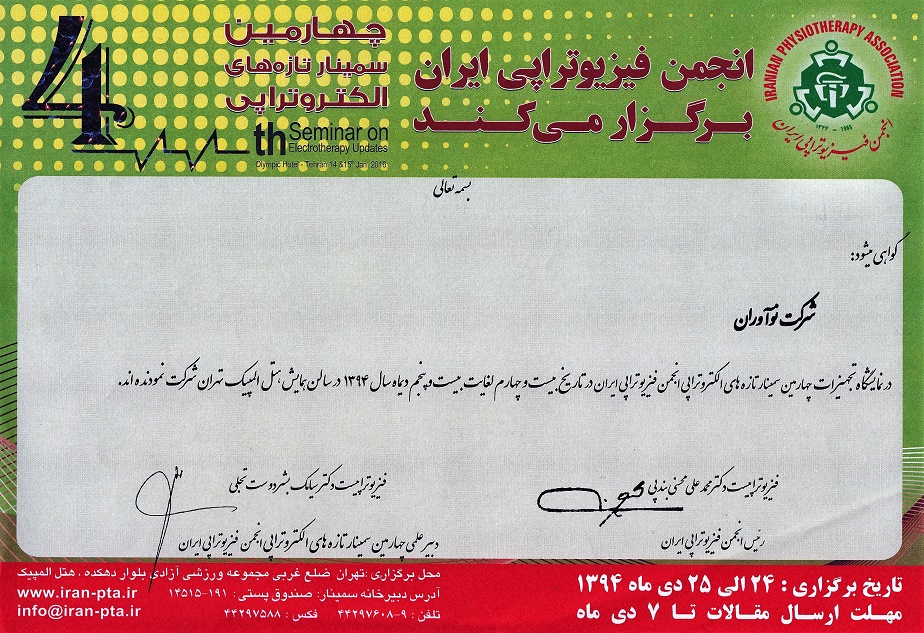 IRANIAN PHYSIOTHERAPY ASSOCIATION
۱۳۴۴ - 1965
انجمن فیزیوتراپی ایران
انجمن فیزیوتراپی ایران
برگزار می‌کند
چهارمین
سمینار تازه‌های
الکتروتراپی
4th Seminar on
Electrotherapy Updates
Olympic Hotel - Tehran 14 &15th Jan, 2016
بسمه تعالی
گواهی میشود:
شرکت نوآوران
در نمایشگاه تجهیزات چهارمین سمینار تازه های الکتروتراپی انجمن فیزیوتراپی ایران در تاریخ بیست و چهارم لغایت بیست و پنجم دیماه سال ۱۳۹۴ در سالن همایش هتل المپیک تهران شرکت نموده اند.
فیزیوتراپیست دکتر محمد علی محسنی بندپی
رئیس انجمن فیزیوتراپی ایران
فیزیوتراپیست دکتر سیامک بشردوست تجلی
دبیر علمی چهارمین سمینار تازه های الکتروتراپی انجمن فیزیوتراپی ایران
تاریخ برگزاری : ۲۴ الی ۲۵ دی ماه ۱۳۹۴
مهلت ارسال مقالات تا ۷ دی ماه
محل برگزاری :تهران ضلع غربی مجموعه ورزشی آزادی بلوار دهکده ، هتل المپیک
آدرس دبیرخانه سمینار: صندوق پستی : ۱۹۱-۱۴۵۱۵
تلفن : ۹-۴۴۲۹۷۶۰۸ فکس : ۴۴۲۹۷۵۸۸
www.iran-pta.ir
info@iran-pta.ir